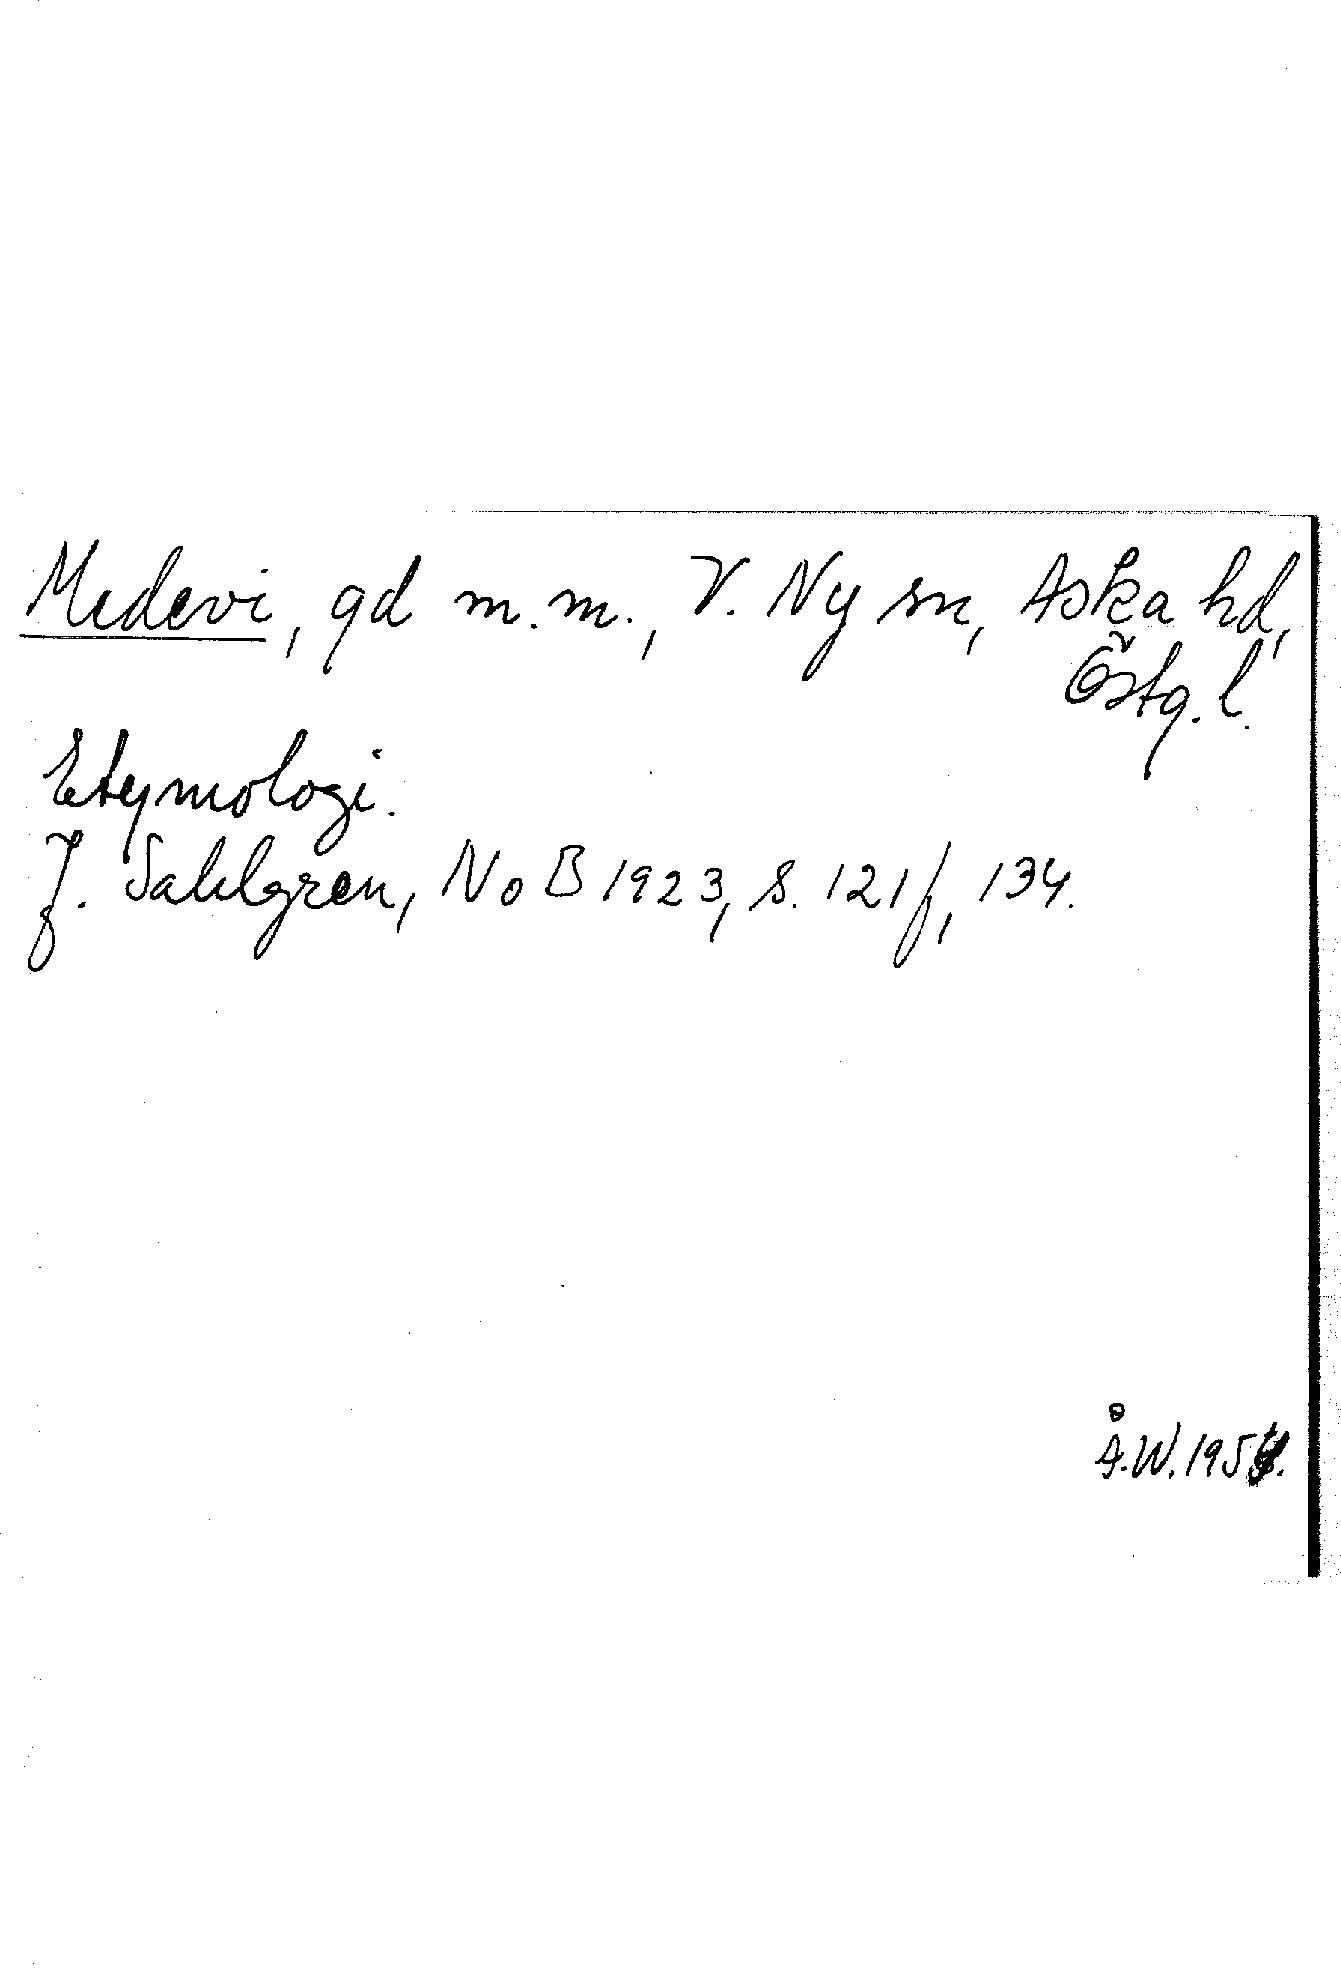 Medevi, gd m.m., V. Ny sn, Aska hd,
Östg. l.
Etymologi.
J. Sahlgren, NoB 1923, s. 121f, 134.
Å.W. 1954.